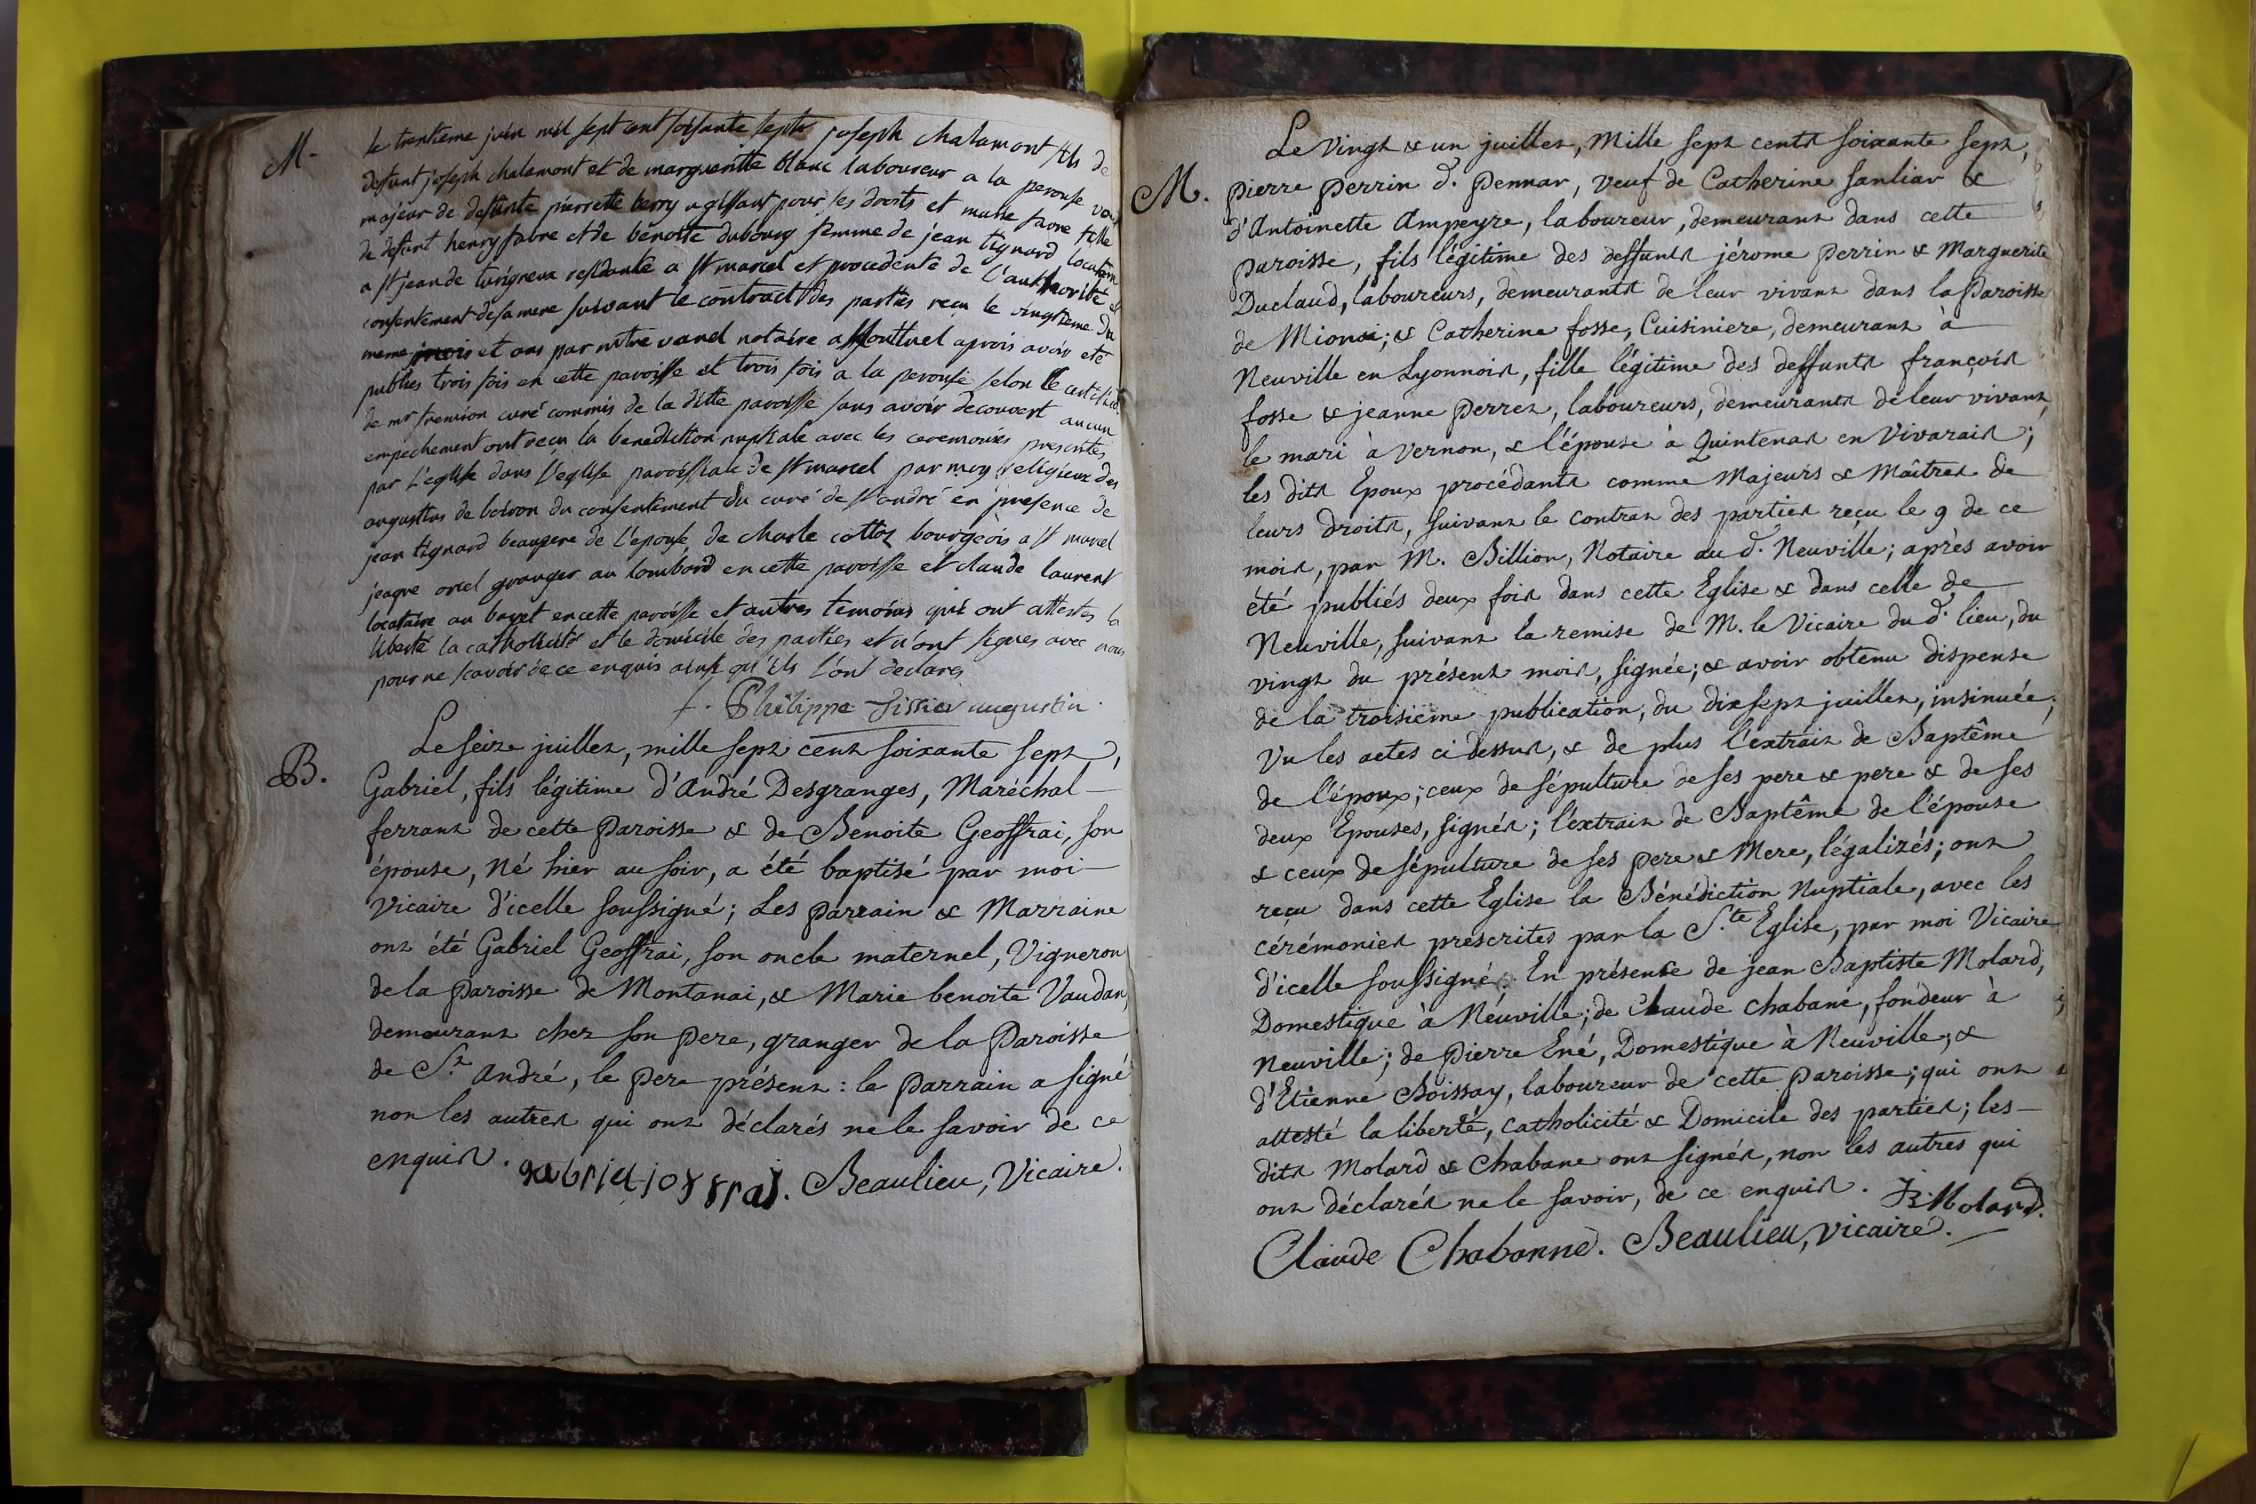 M.
le trentieme juin mil sept cent soisante septs joseph chalamont fils de
defunt joseph chalamont et de margueritte blanc laboureur a la perouse veuf
majeur de defunte pierrette berry agissant pour ses droits et marie favre fille
de defunt henry fabre et de benoitte dubourg femme de jean tignard locataire
a st jean de turigneux residante a st marcel et procedente de l'authorité et
consentement de sa mere suivant le contract des parties recu le vingtieme du
meme mois et ans par nôtre varel notaire a Montluel aprois avoir eté
publies trois fois en cette paroisse et trois fois a la perouse selon le certificat
de mr fremion curé commis de la ditte paroisse sans avoir decouvert aucun
empechement ont reçu la benediction nuptiale avec les ceremonies prescrites
par l'eglise dans l'eglise paroissiale de st marcel par moy religieux des
augustins de du consentement du curé de st andré en presence de
jean tignard beaupere de l'epouse de charle cottoz bourgeois a st marcel
jeaque orcel granger au lombard en cette paroisse et claude laurent
locataire au bayet en cette paroisse et autres temoins qui ont attestes la
liberté la catholicité et le domicile des parties et n'ont signes avec nous
pour ne scavoir de ce enquis ainsi qu'ils l'ont declares
f. Philippe Tissier augustin.
B.
Le seize juillet, mille sept cent soixante sept,
Gabriel, fils légitime d'André Desgranges, Maréchal-
ferrant de cette Paroisse & de Benoite Geoffrai, son
épouse, né hier au soir, a été baptisé par moi
Vicaire d'icelle soussigné; Les Parrain & Marraine
ont été Gabriel Geoffrai, son oncle maternel, Vigneron
de la Paroisse de Montanai, & Marie benoite Vaudan,
demeurant chez son pere, granger de la Paroisse
de St. André, le pere présent: le parrain a signé
non les autres qui ont déclarés ne le savoir de ce
enquis. gabriel joffrai. Beaulieu, Vicaire.
Le vingt & un juillet, Mille sept cents soixante sept,
M. Pierre Perrin d. Pennar, veuf de Catherine Sanliar &
d'Antoinette Ampeyre, laboureur, demeurant dans cette
paroisse, fils légitime des deffunts jérome Perrin & Marguerite
Duclaud, laboureurs, demeurants de leur vivant dans la Paroisse
de Mionai; & Catherine fosse, Cuisiniere, demeurant à
Neuville en Lyonnois, fille légitime des deffunts françois
fosse & jeanne Perret, laboureurs, demeurants de leur vivant,
le mari à Vernon, & l'épouse à Quintenas en Vivarais;
les dits Epoux procédants comme Majeurs & Maîtres de
leurs droits, suivant le contrat des parties reçu le 9 de ce
mois, par M. Billion, Notaire au d. Neuville; après avoir
été publiés deux fois dans cette Eglise & dans celle de
Neuville, suivant la remise de M. le Vicaire du d. lieu, du
vingt du présent mois, signée; & avoir obtenu dispense
de la troisième publication, du dix sept juillet, insinuée;
Vu les actes ci dessus, & de plus l'extrait de Baptême
de l'époux; ceux de sépulture de ses pere & pere & de ses
deux Epouses, signés; l'éxtrait de Baptême de l'épouse
& ceux de sépulture de ses pere & Mere, légalizés; ont
reçu dans cette Eglise la Bénédiction Nuptiale, avec les
cérémonies prescrites par la S.te Eglise, par moi Vicaire
d'icelle soussigné. En présence de jean Baptiste Molard,
Domestique à Neuville; de Claude Chabane, fondeur à
Neuville; de Pierre Ené, Domestique à Neuville; &
d'Etienne Boissay, laboureur de cette paroisse; qui ont
attesté la liberté, catholicité & Domicile des parties; les-
dits Molard & Chabane ont signés, non les autres qui
ont déclarés ne le savoir, de ce enquis. JB Molard.
Claude Chabanne. Beaulieu, vicaire.